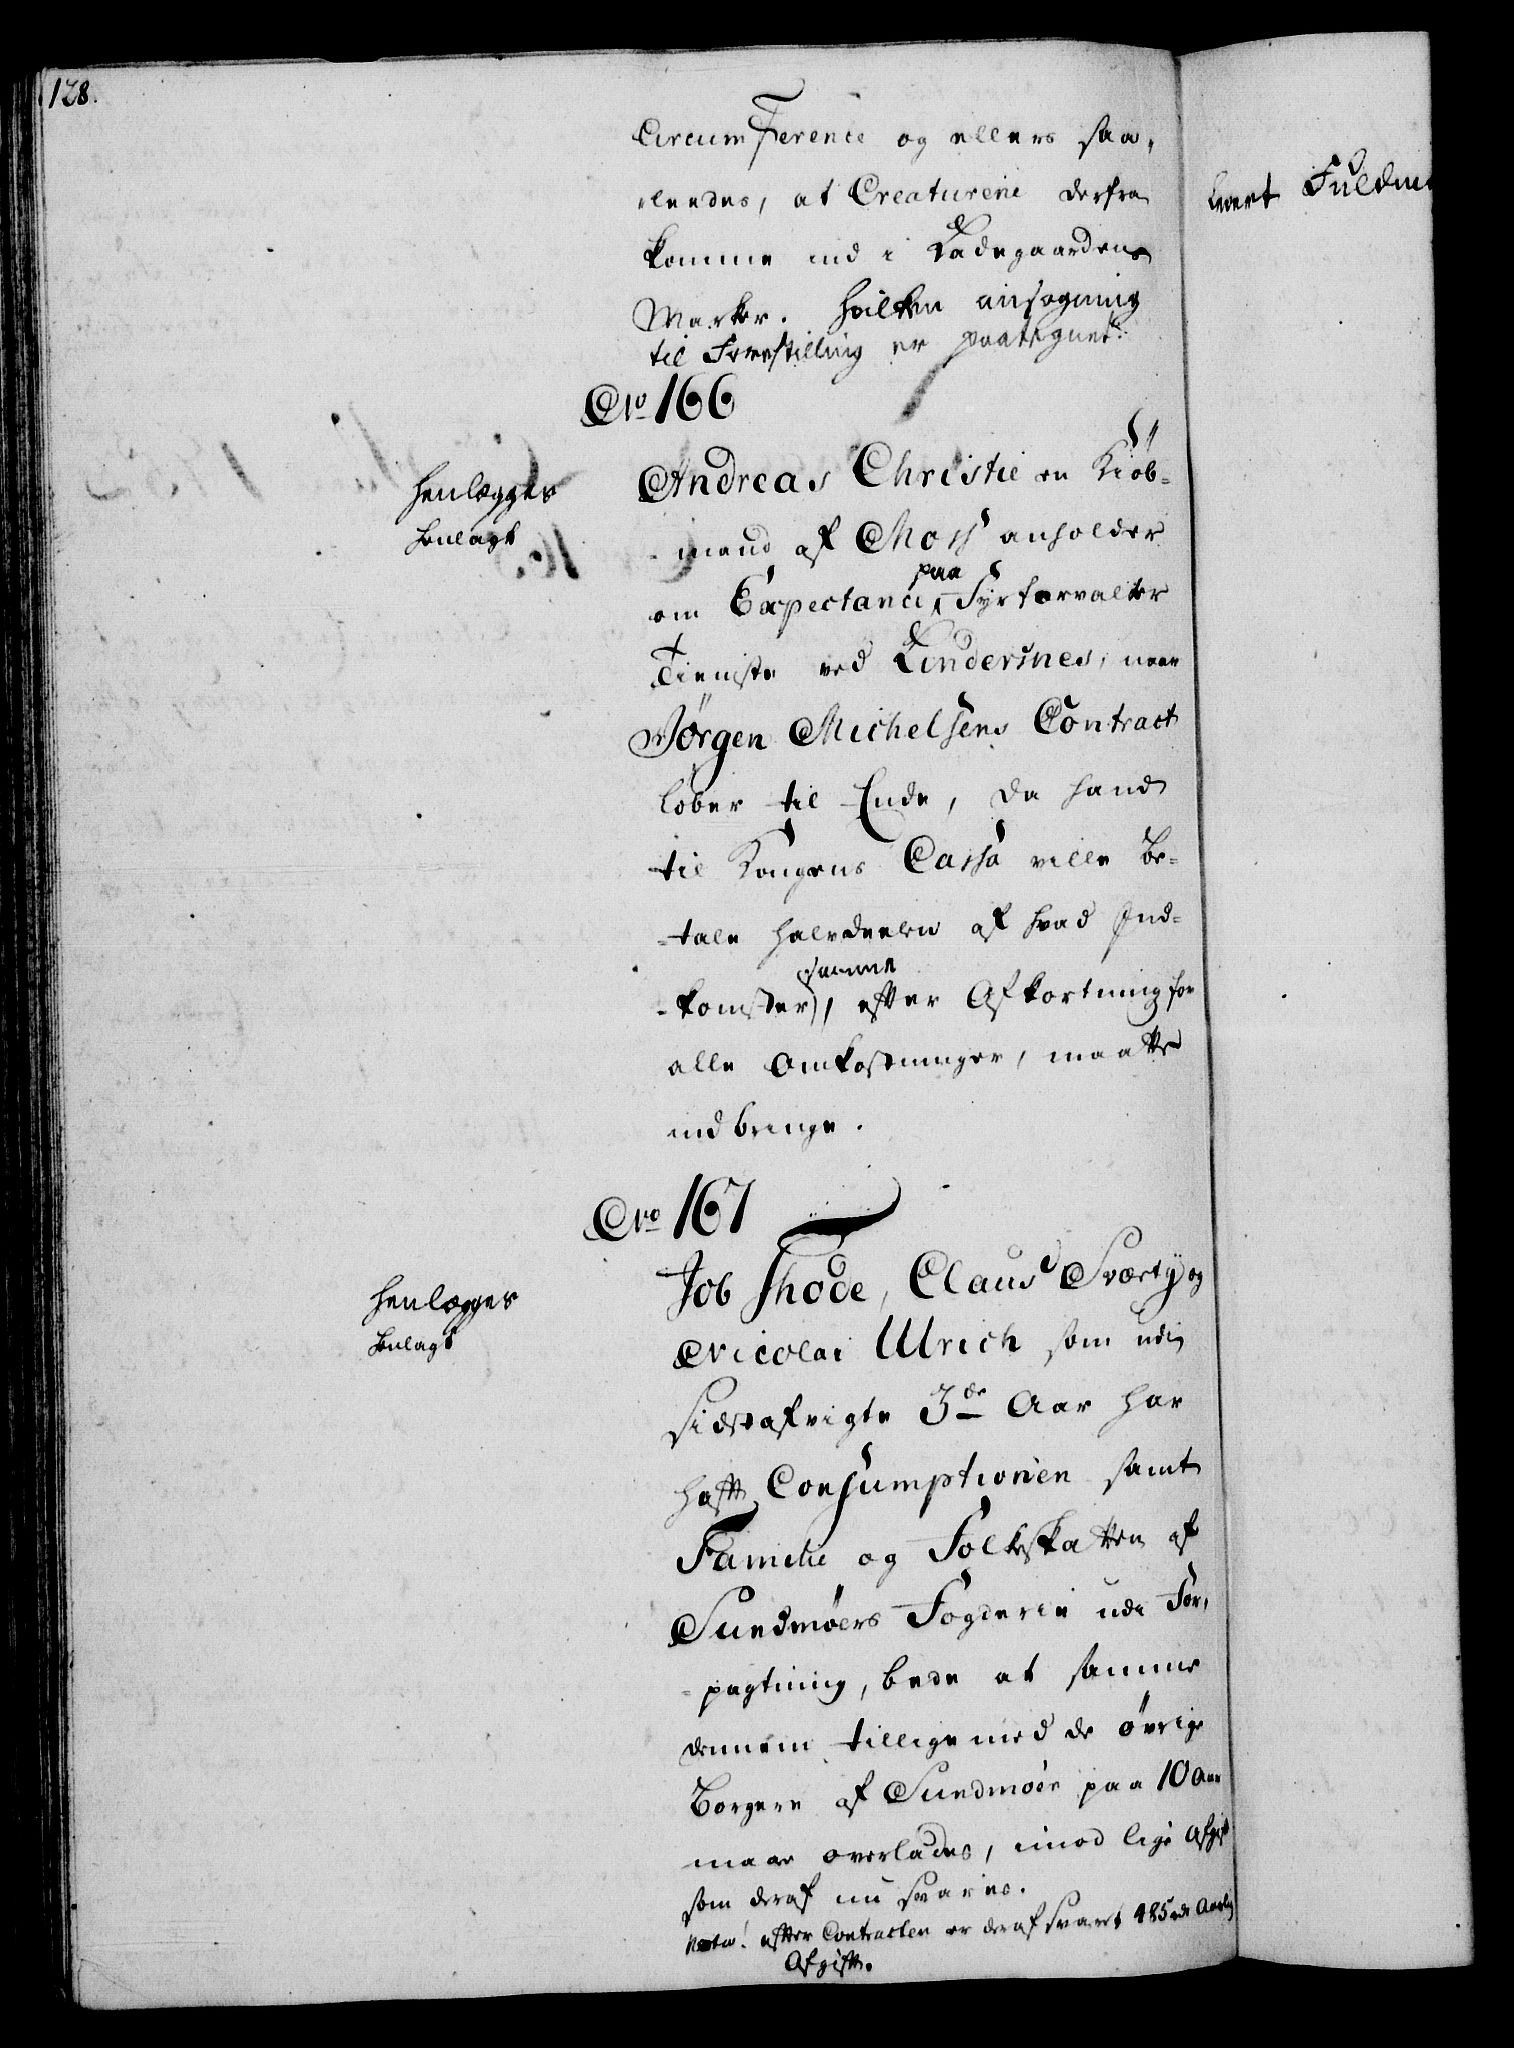 128.
Circumference og ellers saa,
,ledes, at Creaturene derfra
komme ind i Ladegaardens
Marker. hvilken ansøgning
til Forestilling er paategnet.
No 166
henlægges
henlagt
Andreas Christie en Kiøb-
-mand af Moss anholder
om Expectance paa Fyrforvalter
Tieniste ved Lindersnes, naar
Jørgen Michelsens Contract
løber til Ende, da hand
til Kongens Cassa ville be-
-tale halvdeelen af hvad Ind-
-komster samme, efter Afkortning for
alle Omkostninger, maatte
indbringe.
No 167
henlægges
henlagt
Job Thode, Claus Sværty og
Nicolai Ulrich som udi
sidstafvigte 3de Aar har
hafft Consumptionen samt
Familie og Folkeskatten af
Sundmøers Fogderie udi For,
-pagtning, bede at samme
dennem tilligemed de øvrige
Borgere af Sundmøer paa 10 Aar
maae overlades, imod lige Afgift
som deraf nu svares.
Nota! efter Contracten er deraf svaret 485 rdr Aarlig
Afgifft.
Fuldm